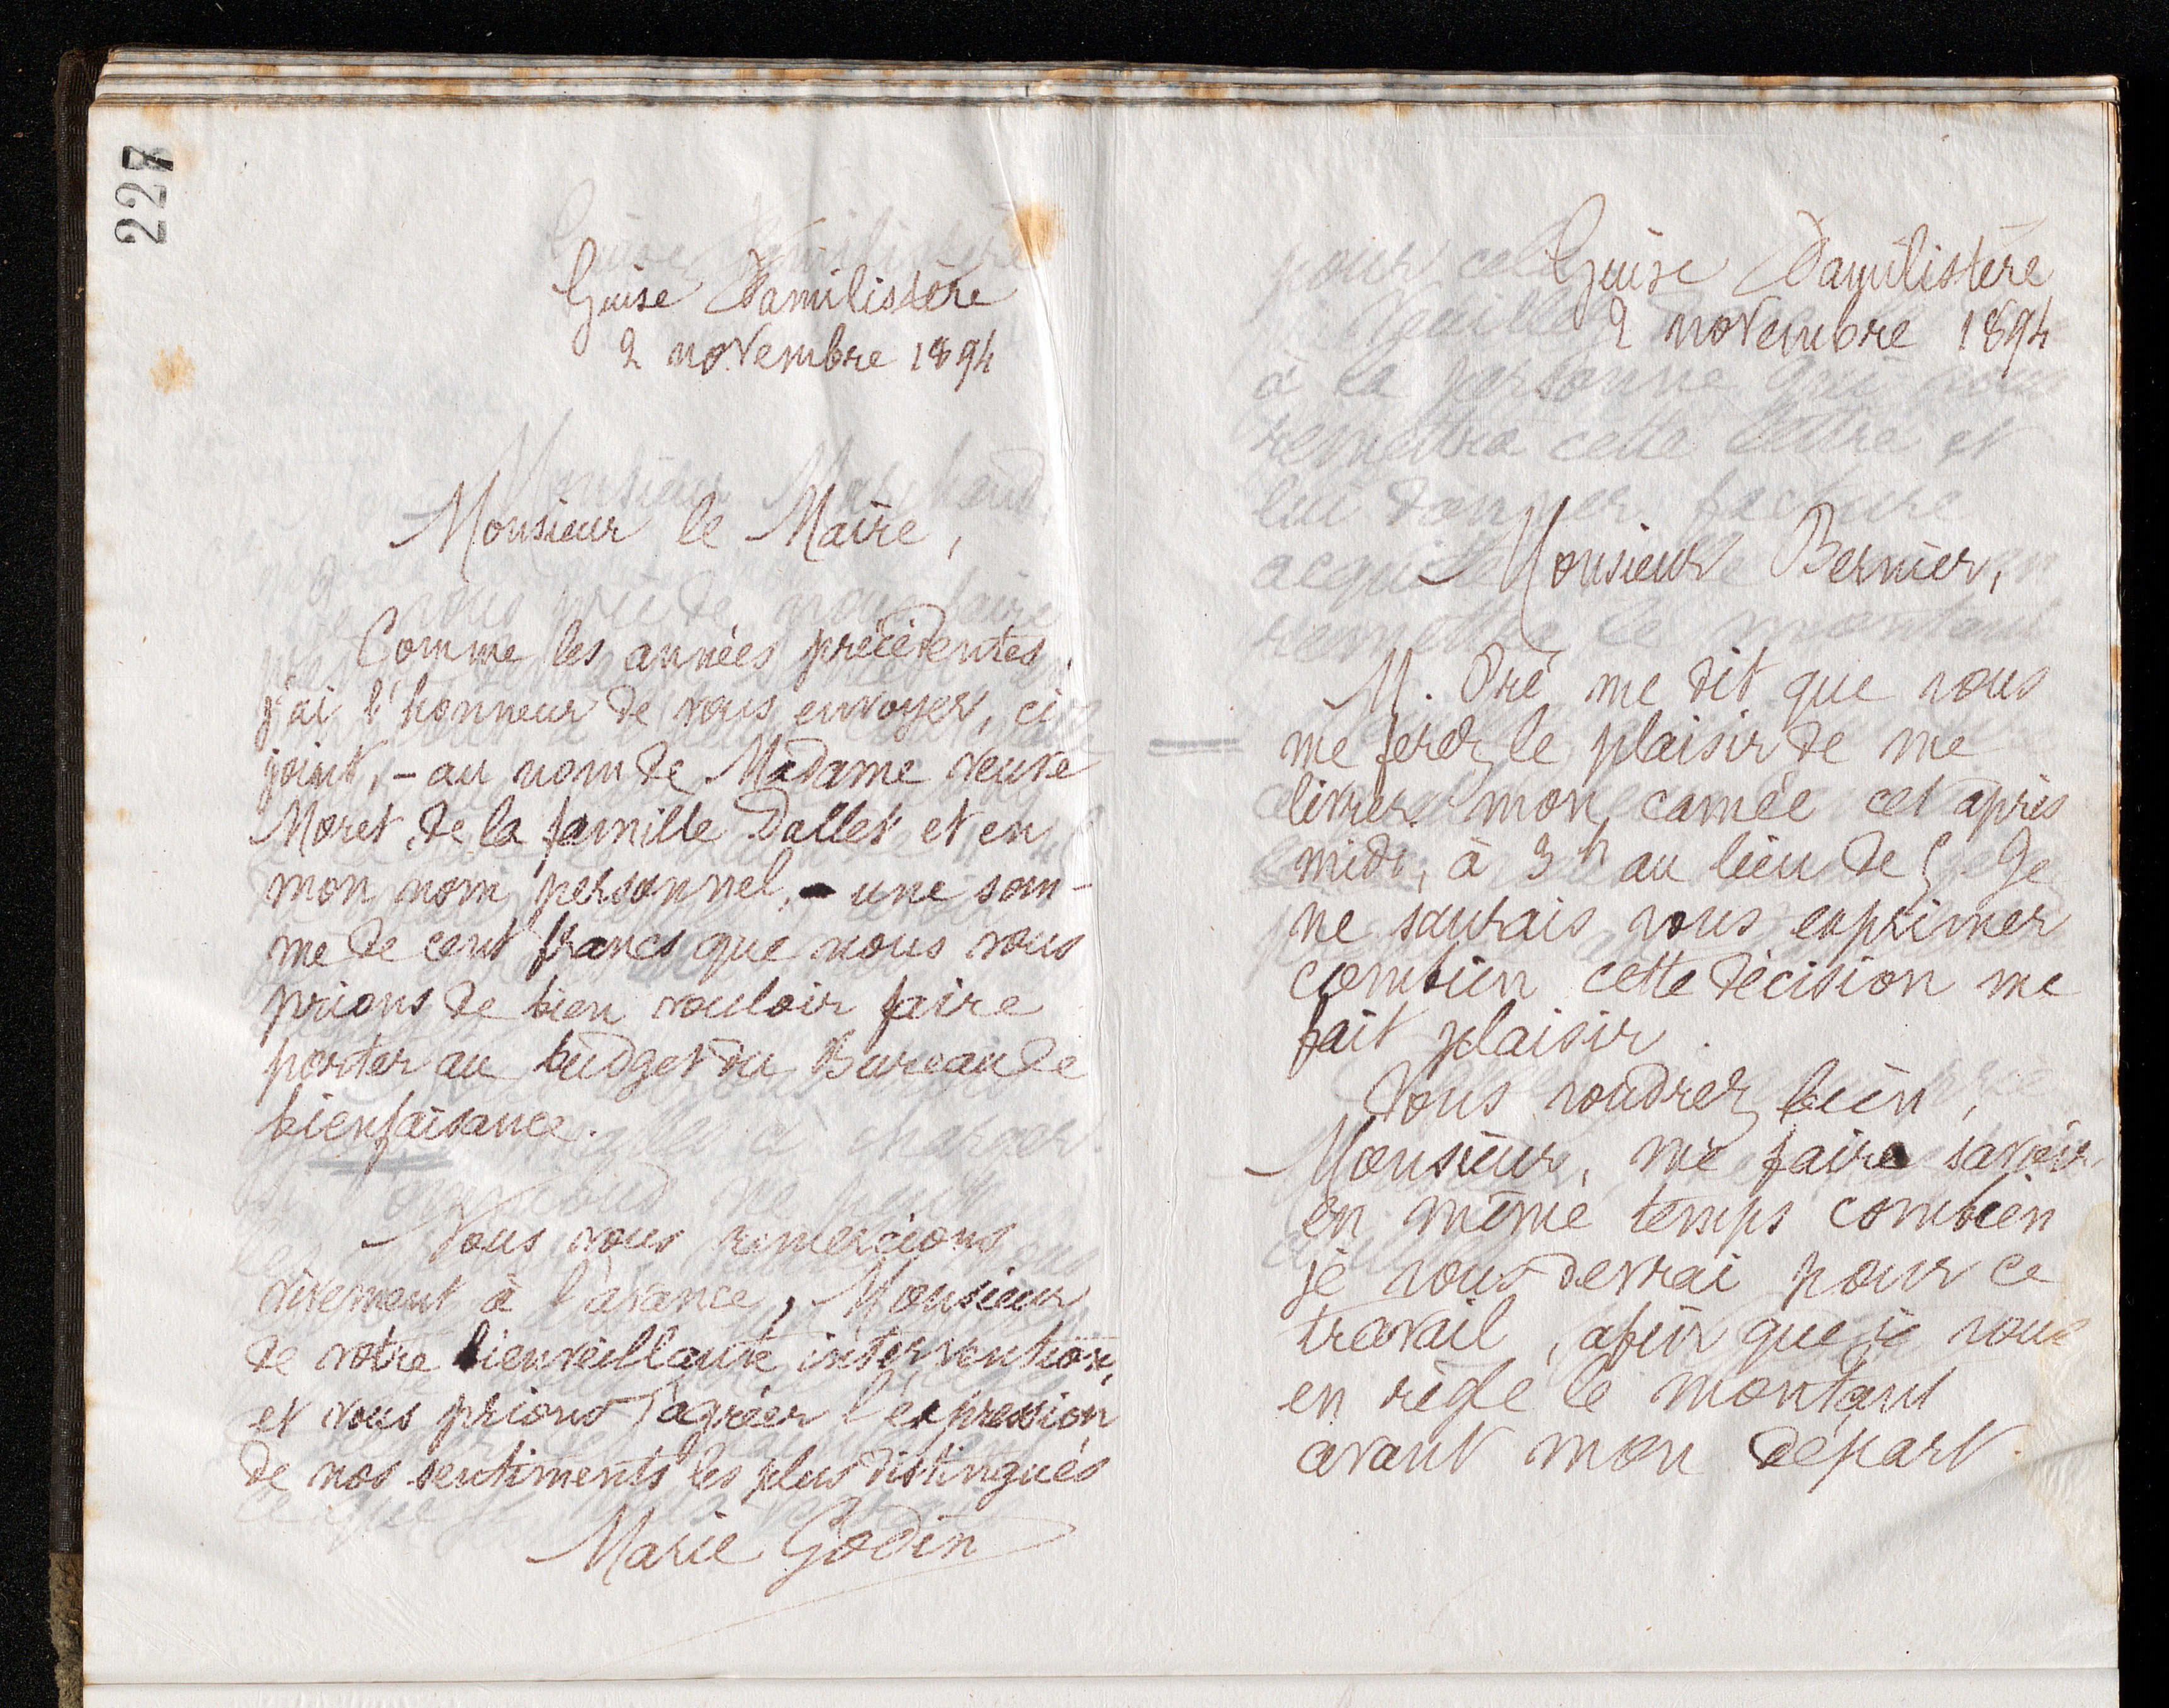 227
Guise Familistère
2 novembre 1894
Monsieur le Maire,
Comme les années précédentes,
j'ai l'honneur de vous envoyer, ci-
joint, - au nom de Madame veuve
Moret, de la famille Dallet et en
mon nom personnel, - une som-
me de cent francs que nous vous
prions de bien vouloir faire
porter au budget du Bureau de
bienfaisance.
Nous vous remercions
vivement à l'avance, Monsieur
de votre bienveillante intervention,
et vous prions d'agréer l'expression
de nos sentiments les plus distingués
Marie Godin
Guise Familistère
2 novembre 1894
Monsieur Bernier,
M. Pré me dit que vous
me ferez le plaisir de me
livrer mon camée cet après
midi, à 3h au lieu de 5. Je
ne saurais vous exprimer
combien cette décision me
fait plaisir.
Vous voudrez bien,
Monsieur, me faire savoir
en même temps combien
je vous devrai pour ce
travail, afin que je vous
en règle le montant
avant mon départ.